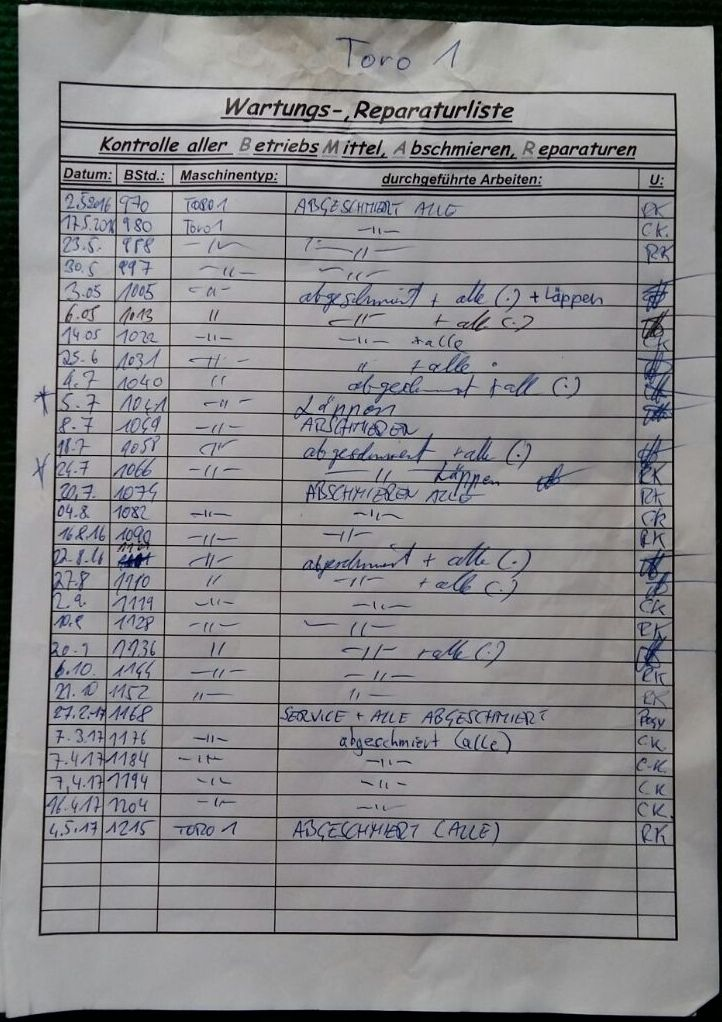 Toro 1
Wartungs-, Reparaturliste
Kontrolle aller BetriebsMittel, Abschmieren, Reparaturen
Datum: BStd.: Maschinentyp: durchgeführte Arbeiten: U:
2.5.2016 970 TORO 1 ABGESCHMIERT ALLE RK
17.5.2016 980 Toro 1 -"- CK.
23.5. 988 -"- -"- RK
30.5 997 -"- -"-
3.05 1005 -"- abgeschmiert + alle (.) + Läppen
6.05 1013 " -"- + alle (.)
14.05 1022 -"- -"- + alle CK
25.6 1031 -"- " + alle .
4.7 1040 " abgeschmiert + all (.)
* 5.7 1041 -"- Läppen
8.7 1049 -"- ABSCHMIEREN
18.7 1058 -"- abgeschmiert + alle (.)
* 24.7 1066 -"- -"- Läppen RK
30.7. 1074 ABSCHMIEREN ALLE RK
04.8. 1082 -"- -"- CK
16.8.16 1090 -"- -"- RK
22.8.16 1101 -"- abgeschmiert + alle (.)
27.8 1110 " -"- + alle (.)
2.9. 1119 -"- -"- CK
10.9 1128 -"- -"- RK
20.9 1136 " -"- + alle (.)
6.10. 1144 -"- -"- RK
21.10 1152 "- "- RK
27.2.17 1168 SERVICE + ALLE ABGESCHMIERT
7.3.17 1176 -"- abgeschmiert (alle) CK.
7.4.17 1184 -"- -"- C.K.
7.4.17 1194 -"- -"- CK
16.4.17 1204 -"- -"- CK.
4.5.17 1215 TORO 1 ABGESCHMIERT (ALLE) RK